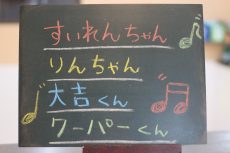 すいれんちゃん
りんちゃん
大吉くん
クーパーくん